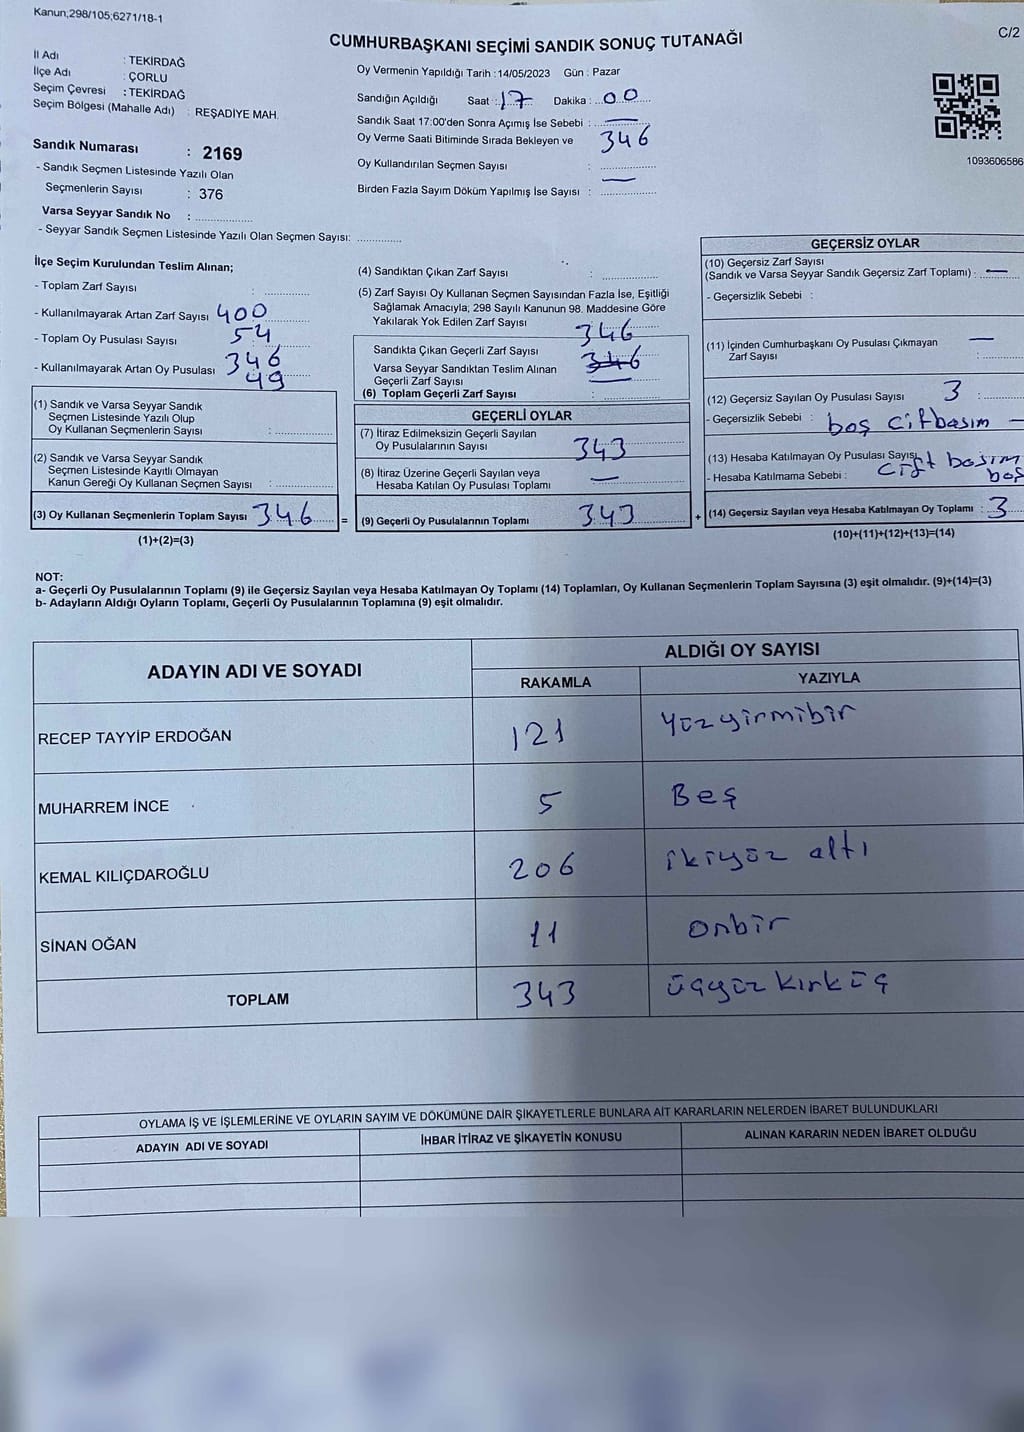 Kanun;298/105;6271/18-1
C/2
CUMHURBAŞKANI SEÇİMİ SANDIK SONUÇ TUTANAĞI
İl Adı : TEKİRDAĞ
İlçe Adı : ÇORLU
Seçim Çevresi : TEKİRDAĞ
Seçim Bölgesi (Mahalle Adı) : REŞADİYE MAH.
Sandık Numarası : 2169
- Sandık Seçmen Listesinde Yazılı Olan
Seçmenlerin Sayısı : 376
Varsa Seyyar Sandık No : ....................
- Seyyar Sandık Seçmen Listesinde Yazılı Olan Seçmen Sayısı: ...............
Oy Vermenin Yapıldığı Tarih :14/05/2023 Gün : Pazar
Sandığın Açıldığı Saat : 17 Dakika : 00
Sandık Saat 17:00'den Sonra Açımış İse Sebebi : —
Oy Verme Saati Bitiminde Sırada Bekleyen ve 346
Oy Kullandırılan Seçmen Sayısı :
Birden Fazla Sayım Döküm Yapılmış İse Sayısı : —
1093606586
İlçe Seçim Kurulundan Teslim Alınan;
- Toplam Zarf Sayısı :
- Kullanılmayarak Artan Zarf Sayısı 400
- Toplam Oy Pusulası Sayısı 54
- Kullanılmayarak Artan Oy Pusulası 346
49
(1) Sandık ve Varsa Seyyar Sandık
Seçmen Listesinde Yazılı Olup
Oy Kullanan Seçmenlerin Sayısı :
(2) Sandık ve Varsa Seyyar Sandık
Seçmen Listesinde Kayıtlı Olmayan
Kanun Gereği Oy Kullanan Seçmen Sayısı :
(3) Oy Kullanan Seçmenlerin Toplam Sayısı 346 =
(1)+(2)=(3)
(4) Sandıktan Çıkan Zarf Sayısı :
(5) Zarf Sayısı Oy Kullanan Seçmen Sayısından Fazla İse, Eşitliği
Sağlamak Amacıyla; 298 Sayılı Kanunun 98. Maddesine Göre
Yakılarak Yok Edilen Zarf Sayısı 346
Sandıkta Çıkan Geçerli Zarf Sayısı 346
Varsa Seyyar Sandıktan Teslim Alınan
Geçerli Zarf Sayısı —
(6) Toplam Geçerli Zarf Sayısı :
GEÇERLİ OYLAR
(7) İtiraz Edilmeksizin Geçerli Sayılan
Oy Pusulalarının Sayısı 343
(8) İtiraz Üzerine Geçerli Sayılan veya
Hesaba Katılan Oy Pusulası Toplamı —
(9) Geçerli Oy Pusulalarının Toplamı 343 +
GEÇERSİZ OYLAR
(10) Geçersiz Zarf Sayısı
(Sandık ve Varsa Seyyar Sandık Geçersiz Zarf Toplamı) : —
- Geçersizlik Sebebi :
(11) İçinden Cumhurbaşkanı Oy Pusulası Çıkmayan —
Zarf Sayısı :
(12) Geçersiz Sayılan Oy Pusulası Sayısı 3 :
- Geçersizlik Sebebi : boş çiftbasım —
(13) Hesaba Katılmayan Oy Pusulası Sayısı
- Hesaba Katılmama Sebebi : çift basım
boş
(14) Geçersiz Sayılan veya Hesaba Katılmayan Oy Toplamı : 3
(10)+(11)+(12)+(13)=(14)
NOT:
a- Geçerli Oy Pusulalarının Toplamı (9) ile Geçersiz Sayılan veya Hesaba Katılmayan Oy Toplamı (14) Toplamları, Oy Kullanan Seçmenlerin Toplam Sayısına (3) eşit olmalıdır. (9)+(14)=(3)
b- Adayların Aldığı Oyların Toplamı, Geçerli Oy Pusulalarının Toplamına (9) eşit olmalıdır.
ADAYIN ADI VE SOYADI
ALDIĞI OY SAYISI
RAKAMLA YAZIYLA
RECEP TAYYİP ERDOĞAN 121 Yüzyirmibir
MUHARREM İNCE 5 Beş
KEMAL KILIÇDAROĞLU 206 ikiyüz altı
SİNAN OĞAN 11 Onbir
TOPLAM 343 üçyüz kırküç
OYLAMA İŞ VE İŞLEMLERİNE VE OYLARIN SAYIM VE DÖKÜMÜNE DAİR ŞİKAYETLERLE BUNLARA AİT KARARLARIN NELERDEN İBARET BULUNDUKLARI
ADAYIN ADI VE SOYADI İHBAR İTİRAZ VE ŞİKAYETİN KONUSU ALINAN KARARIN NEDEN İBARET OLDUĞU